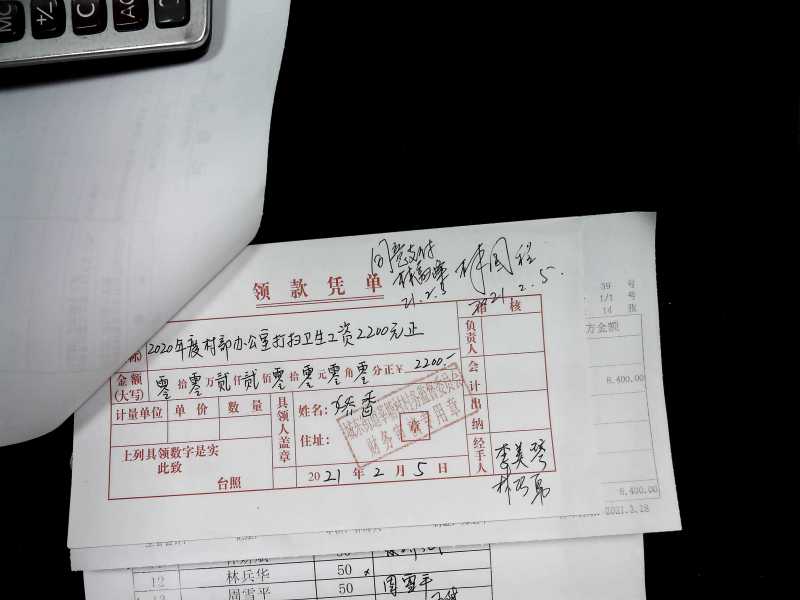 MC
+/-
C
AC
同意支付
21.2.5
2021.2.5.
领款凭单
稽核
2020年度村部办公室打扫卫生工资2200元正
负责人
金额
(大写)
零拾零万贰仟贰佰零拾零元零角零分正¥ 2200.-
会计
计量单位 单价 数量
具领人盖章
姓名:
住址:
财务 专用章
出纳
上列具领数字是实
此致
台照
2021年2月5日
经手人
李美琴
39 号
1/1 号
14 张
方金额
8,400.00
8,400.00
2021.3.18
12 林兵华 50
周雪平 50 周雪平